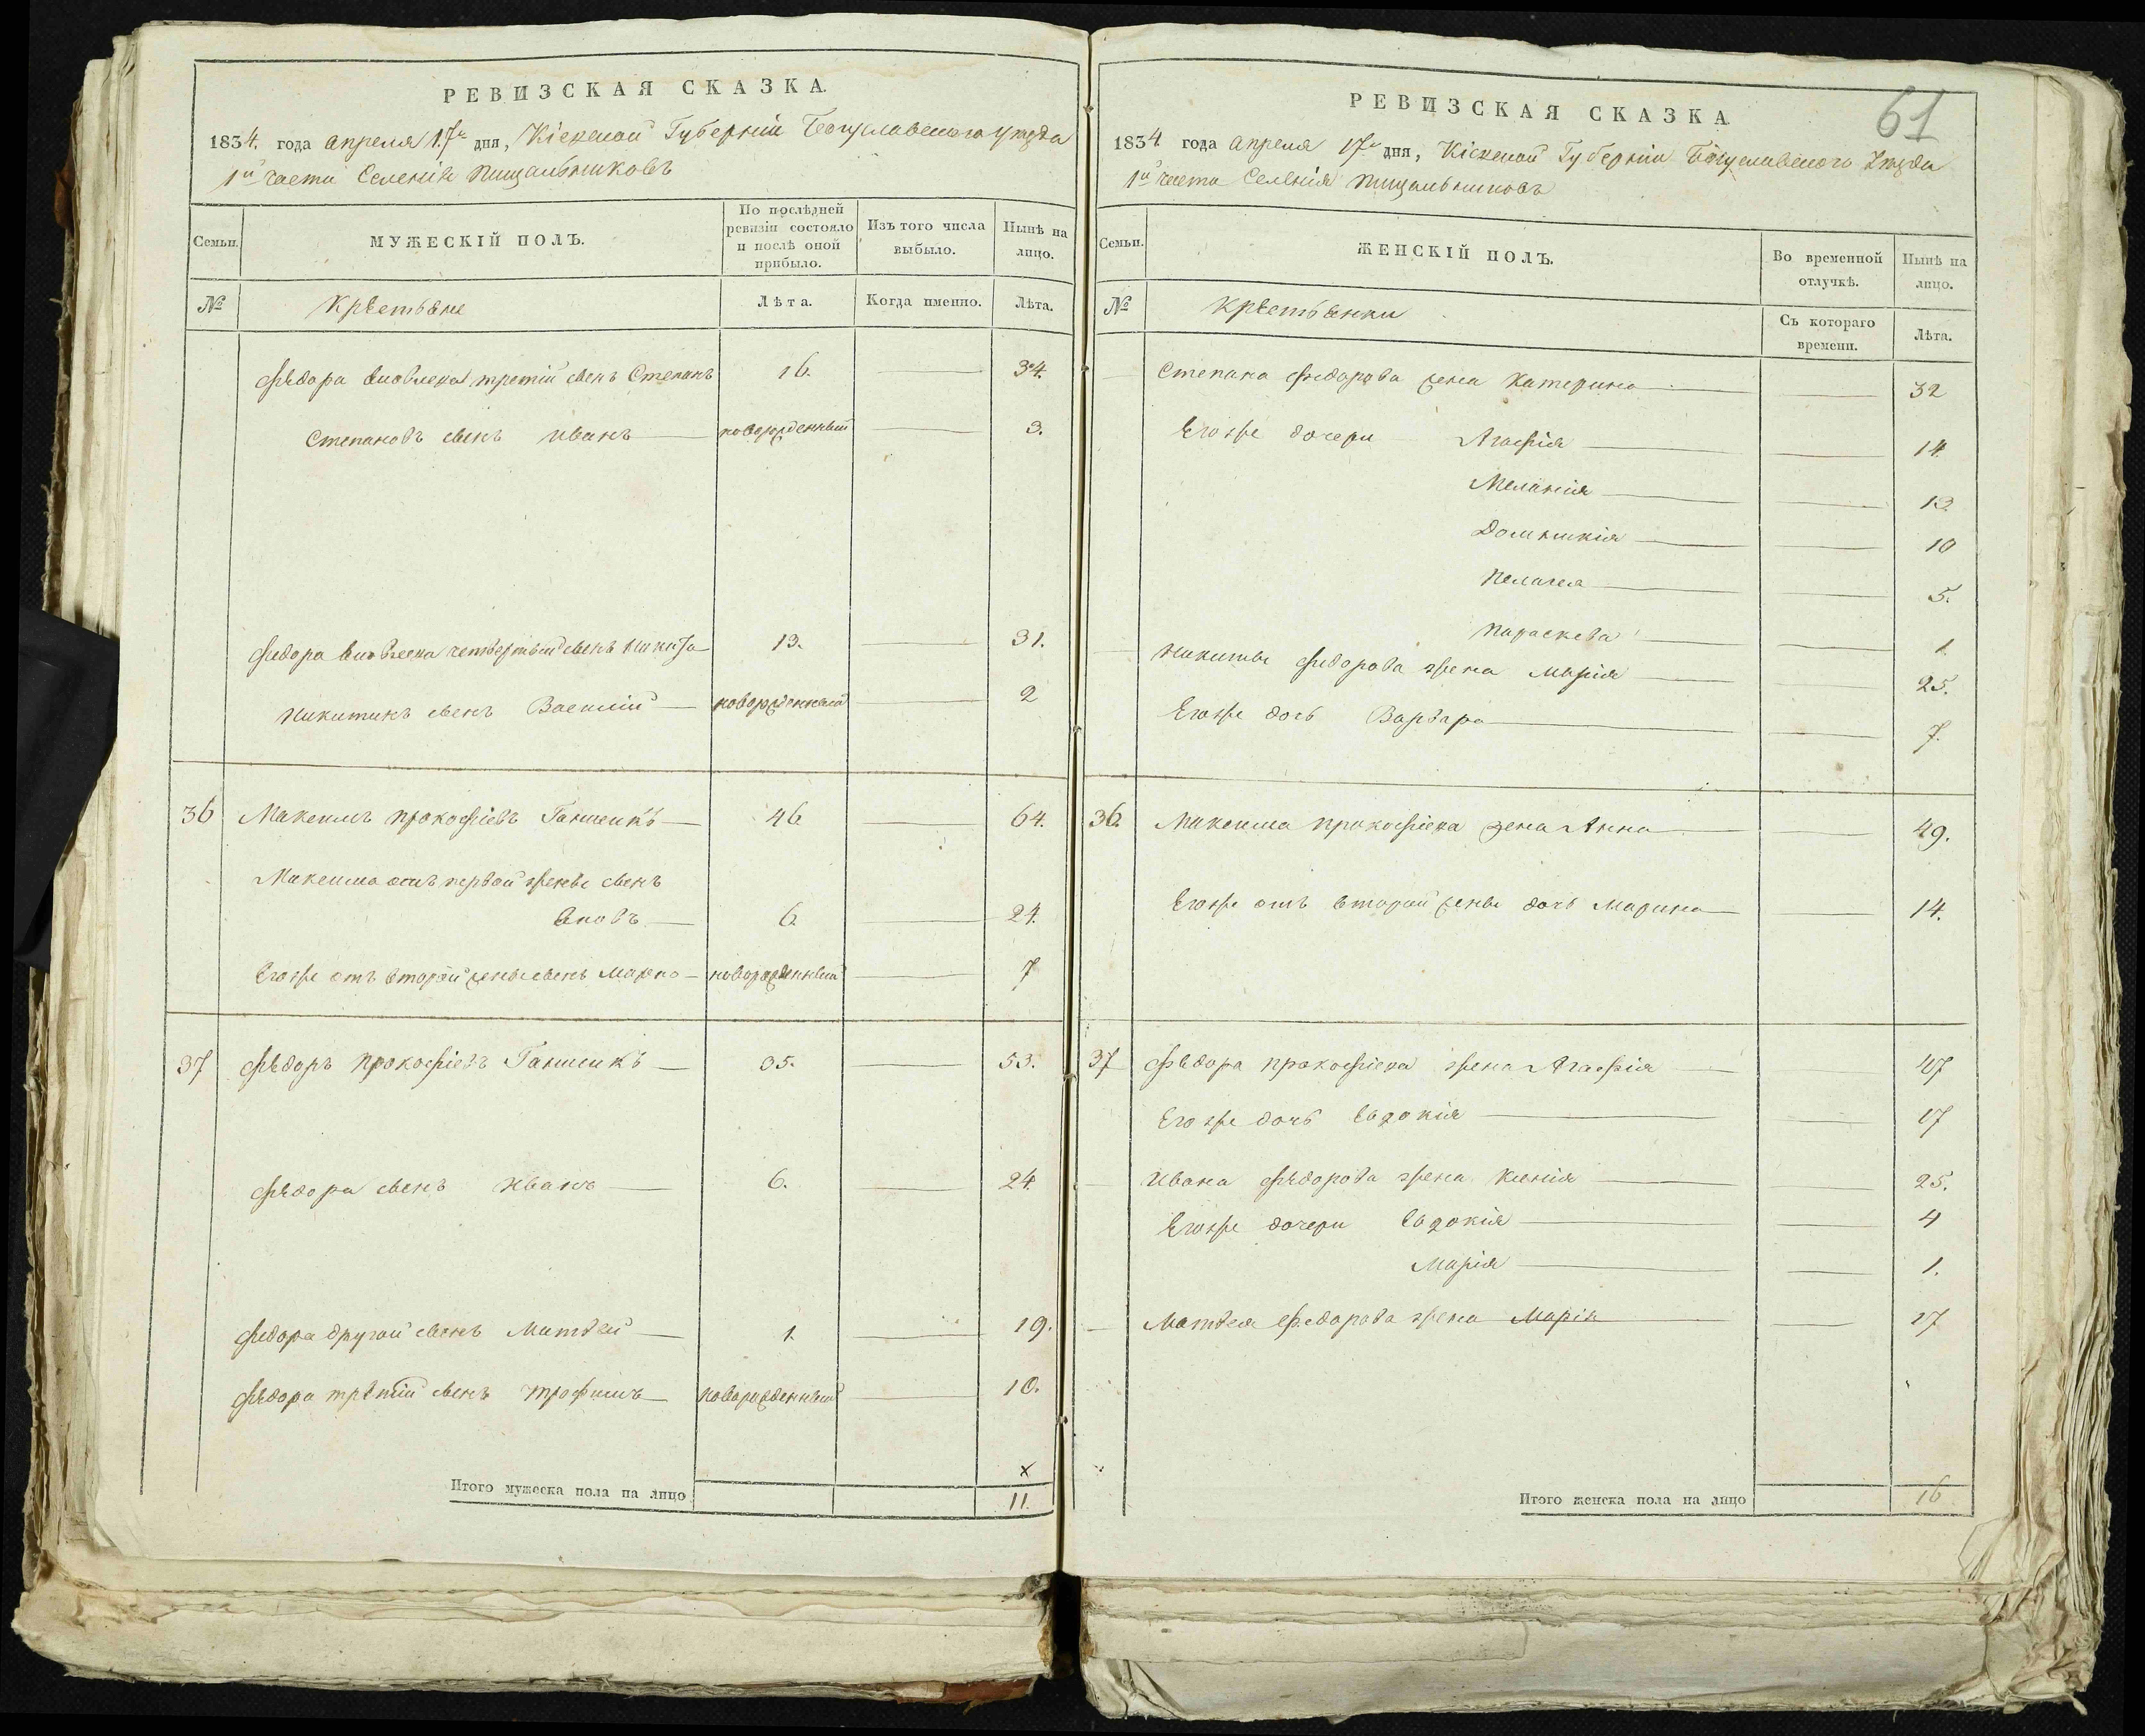 РЕВИЗСКАЯ СКАЗКА.
1834. года апреля 17го дня, Кіевской Губерніи Богуславскаго уезда
1й части Селенія Пищальниковъ
Семьи.
МУЖЕСКІЙ ПОЛЪ.
По послѣдней ревизіи состояло и послѣ оной прибыло.
Изъ того числа выбыло.
Нынѣ на лицо.
№
Крестьяне
Лѣта.
Когда именно.
Лѣта.
Федора Яковлева третій сынъ Степанъ 16. 34.
Степановъ сынъ Иванъ новорожденный 3.
Федора Яковлева четвертый сынъ Никита 13. 31.
Никитинъ сынъ Василій новорожденный 2
36 Максимъ Прокофіевъ 46 64.
Максима отъ первой жены сынъ
Яковъ 6 24.
Егоже отъ второй жены сынъ Марко новорожденный 7
37 Федоръ Прокофіевъ 35. 53.
Федора сынъ Иванъ 6. 24.
Федора другой сынъ Матвей 1 19.
Федора третій сынъ Трофимъ новорожденный 10.
х
Итого мужеска пола на лицо 11
61
РЕВИЗСКАЯ СКАЗКА.
1834 года апреля 17го дня, Кіевской Губерніи Богуславскаго Уезда
1й части Селенія Пищальниковъ
Семьи.
ЖЕНСКІЙ ПОЛЪ.
Во временной отлучкѣ.
Нынѣ на лицо.
№
Крестьянки
Съ котораго времени.
Лѣта.
Степана Федорова жена Катерина 32
Егоже дочери Агафія 14
Меланія 13
Домникія 10
Пелагея 5.
Параскева 1
Никиты Федорова жена Марія 25.
Егоже дочь Варвара 7.
36. Максима Прокофіева жена Анна 49.
Егоже отъ второй жены дочь Марина 14.
37 Федора Прокофіева жена Агафія 47
Егоже дочь Евдокія 17
Ивана Федорова жена Ксенія 25.
Егоже дочери Евдокія 4
Марія 1.
Матвея Федорова жена Марія 17
Итого женска пола на лицо 16